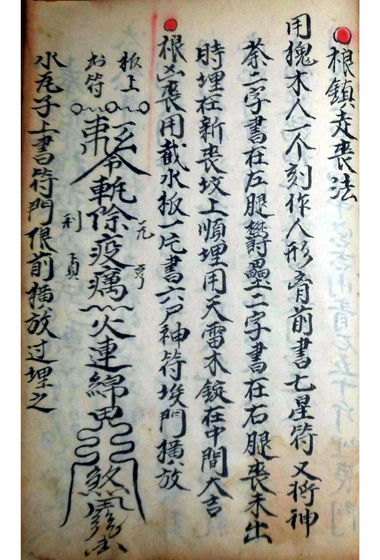 根鎮走喪法
用槐木人一个刻作人形胷前書七星符又將神
荼二字書在左腿欝壘二字書在右腿喪未出
時埋在新喪坟上順埋用天雷木錠在中間大吉
根凶喪用截水板一片書六戸神符埃門橫放
板上
书符
令斬除疫癘火連綿鬼
元亨
利貞
水瓦子上書符門限前橫放过埋之